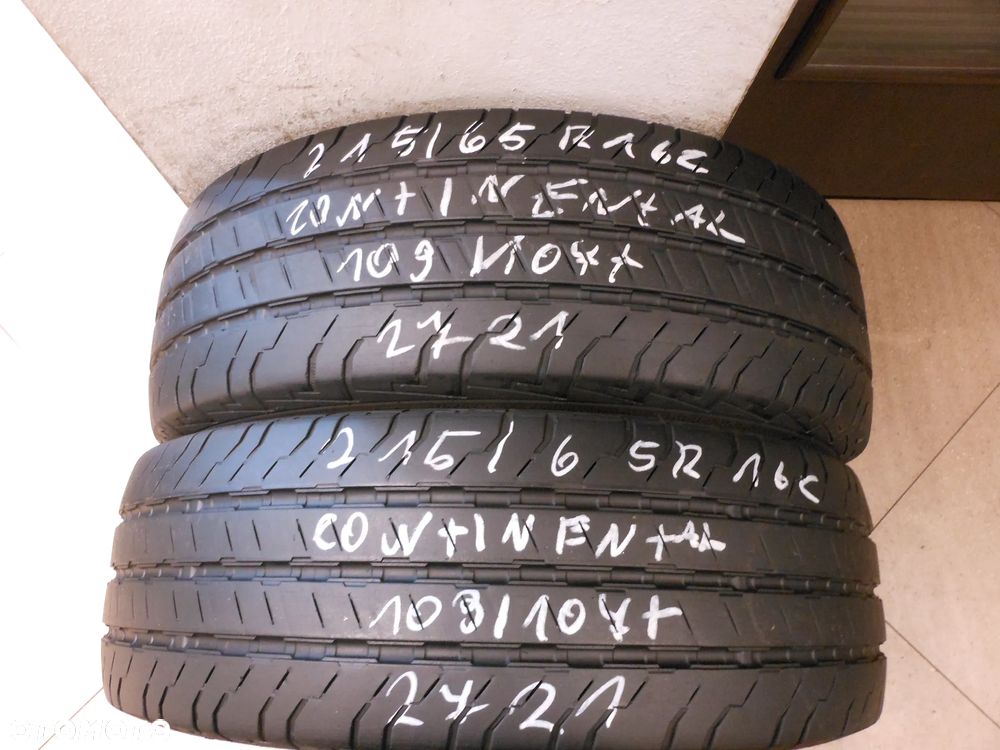 215/65 R16C
CONTINENTAL
109/107T
2721
215/65R16C
CONTINENTAL
109/107T
2721